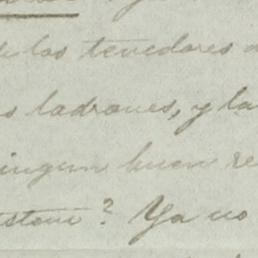 de los tenedores d
s ladrones, y la
ningun buen re
? Ya no